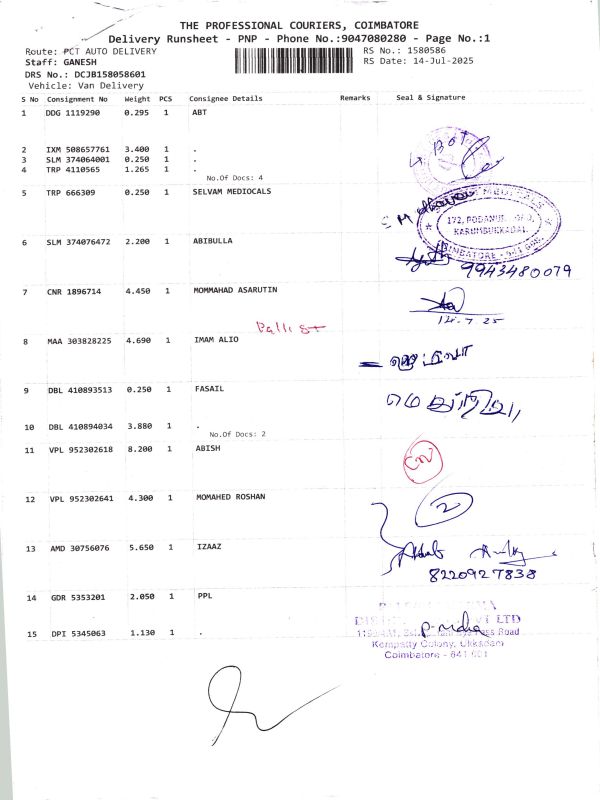 THE PROFESSIONAL COURIERS, COIMBATORE
Delivery Runsheet - PNP - Phone No.:9047080280 - Page No.:1
Route: PCT AUTO DELIVERY RS No.: 1580586
Staff: GANESH RS Date: 14-Jul-2025
DRS No.: DCJB158058601
Vehicle: Van Delivery
S No Consignment No Weight PCS Consignee Details Remarks Seal & Signature
1 DDG 1119290 0.295 1 ABT
2 IXM 508657761 3.400 1 .
3 SLM 374064001 0.250 1 .
4 TRP 4110565 1.265 1 .
No.Of Docs: 4
5 TRP 666309 0.250 1 SELVAM MEDIOCALS
172, PODANUR
KARUMBUKKADAI,
6 SLM 374076472 2.200 1 ABIBULLA
9943480079
7 CNR 1896714 4.450 1 MOMMAHAD ASARUTIN
14.7.25
8 MAA 303828225 4.690 1 IMAM ALIO
9 DBL 410893513 0.250 1 FASAIL
10 DBL 410894034 3.880 1 .
No.Of Docs: 2
11 VPL 952302618 8.200 1 ABISH
12 VPL 952302641 4.300 1 MOMAHED ROSHAN
2
13 AMD 30756076 5.650 1 IZAAZ
8220927838
14 GDR 5353201 2.050 1 PPL
PVT LTD
15 DPI 5345063 1.130 1 .
Road
Kempatty Colony, Ukkadam
Coimbatore - 641 001